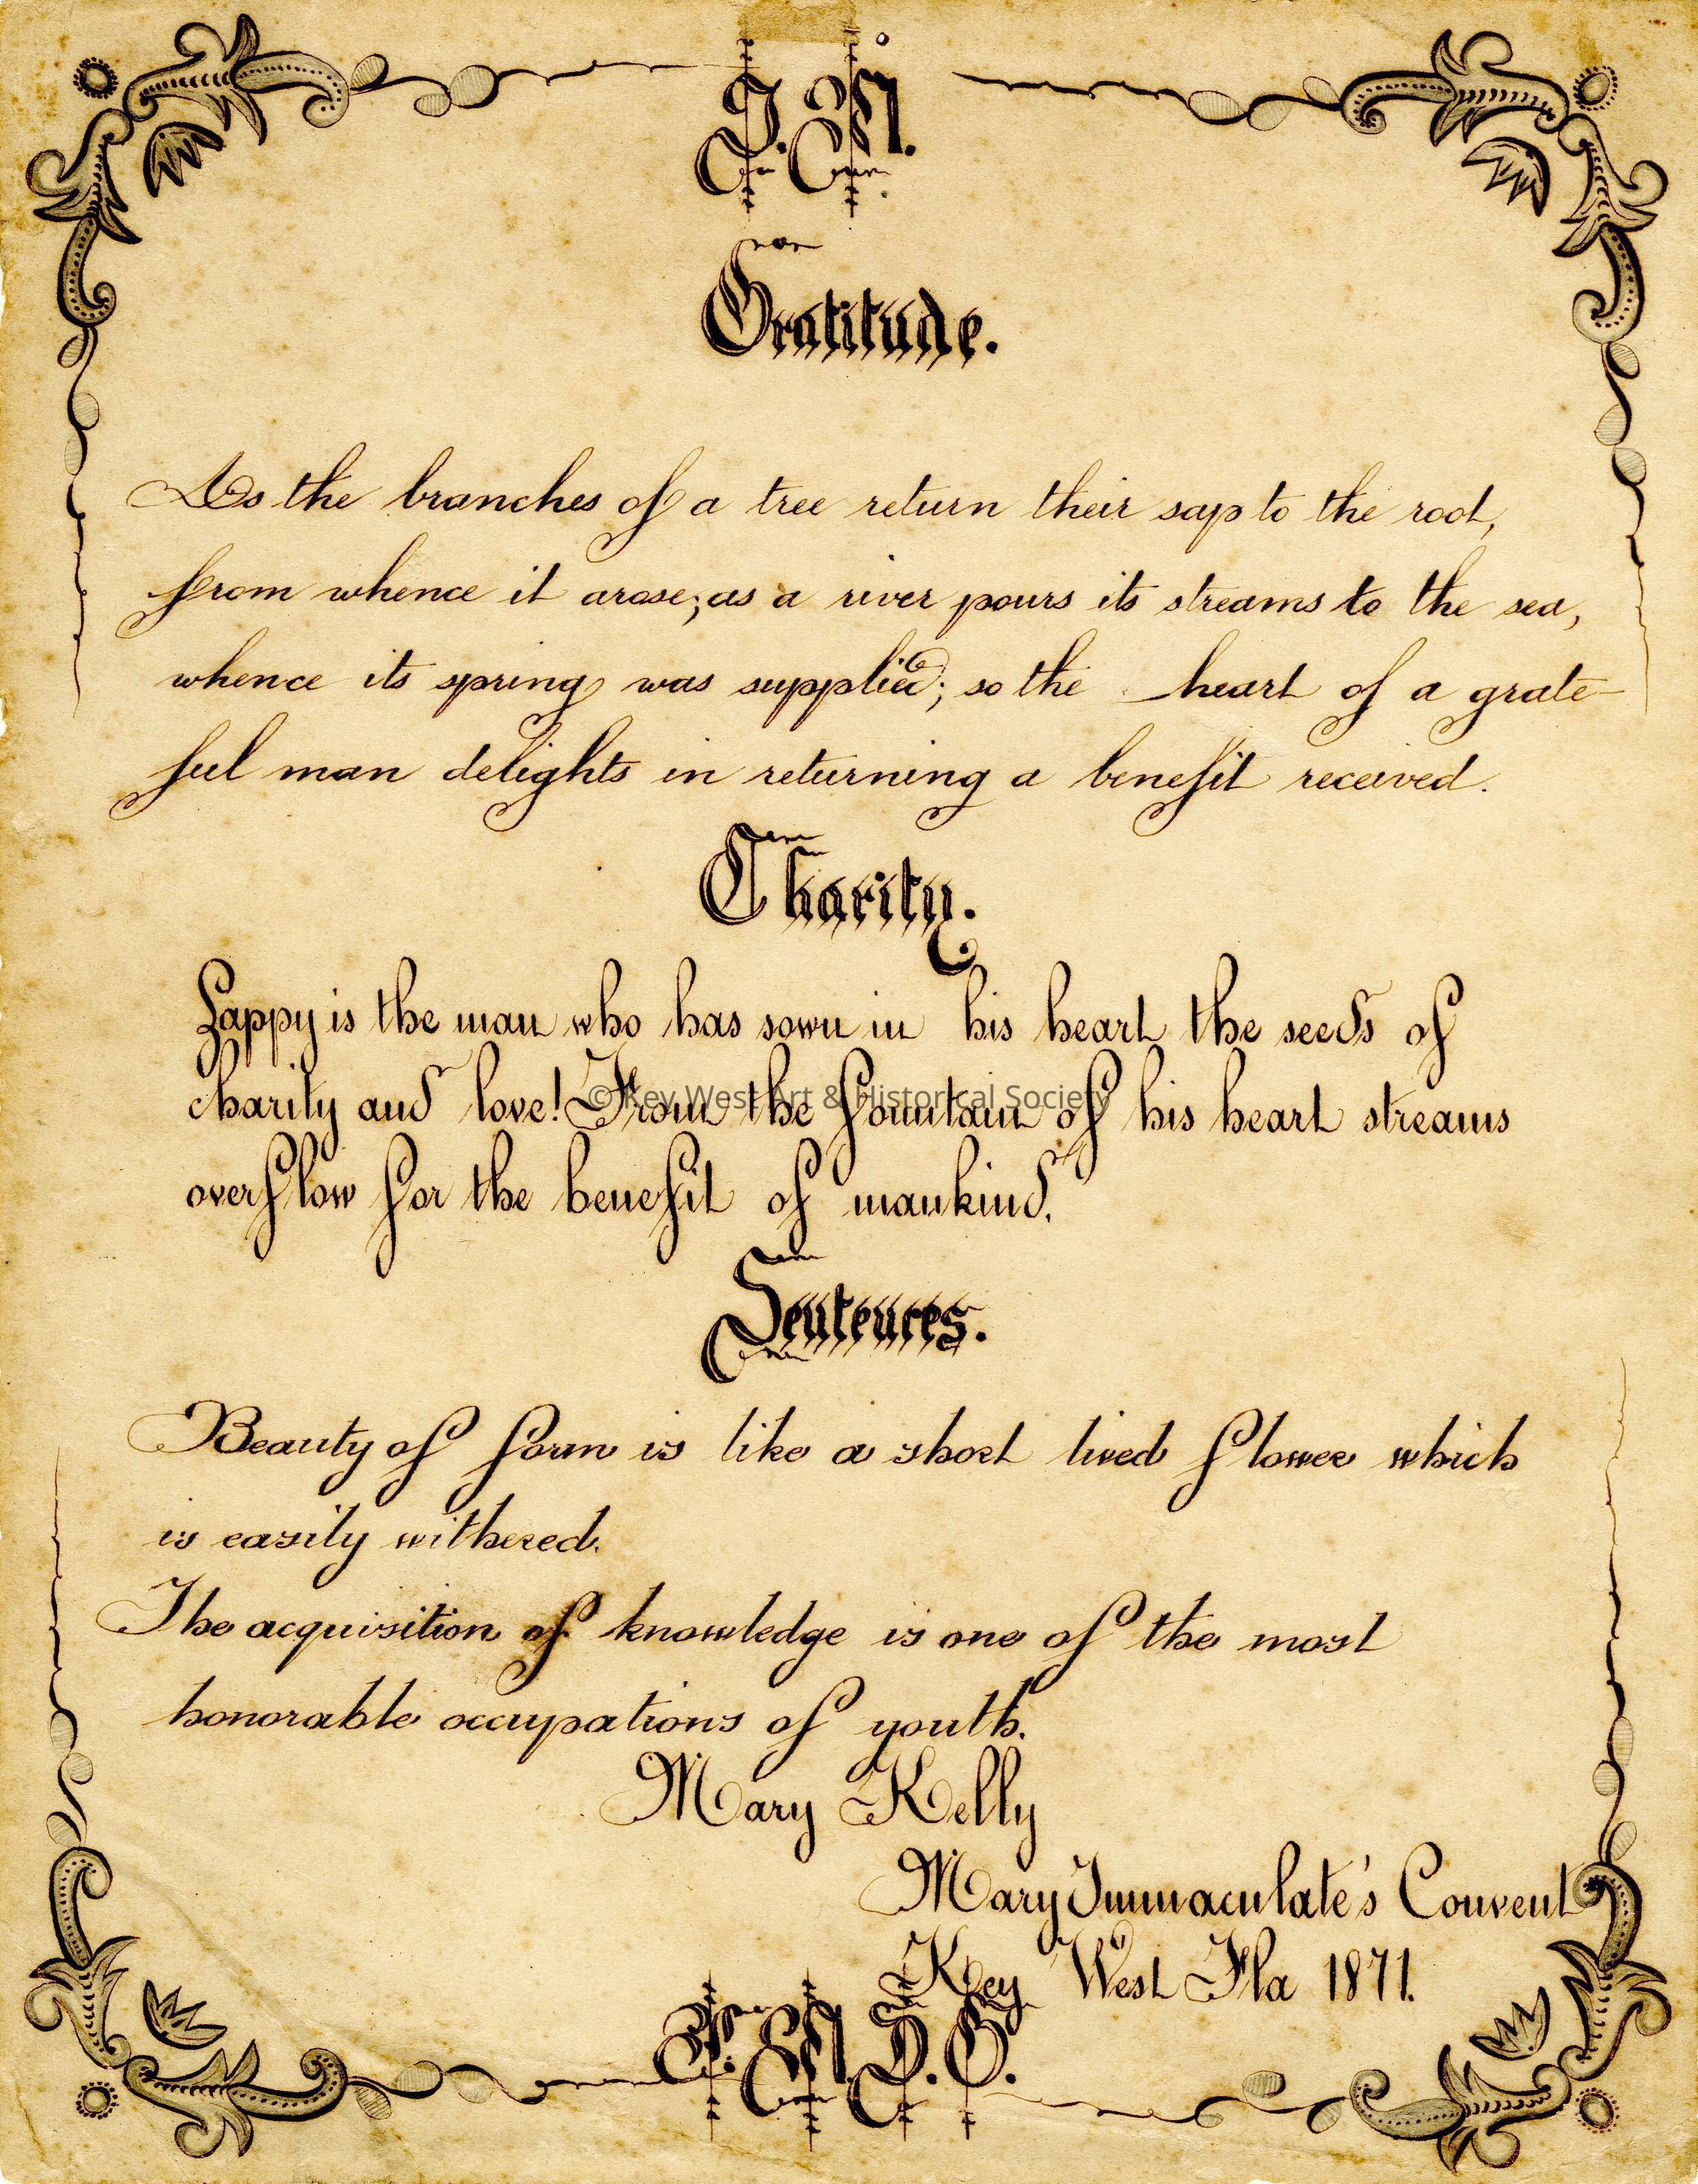 J. M.
Gratitude.
As the branches of a tree return their sap to the root,
from whence it arose; as a river pours its streams to the sea,
whence its spring was supplied; so the heart of a grate-
ful man delights in returning a benefit received.
Charity.
Happy is the man who has sown in his heart the seeds of
charity and love! From the fountain of his heart streams
© Key West Art & Historical Society
overflow for the benefit of mankind.
Sentences.
Beauty of form is like a short lived flower which
is easily withered.
The acquisition of knowledge is one of the most
honorable occupations of youth.
Mary Kelly
Mary Immaculate's Convent
Key West Fla 1871.